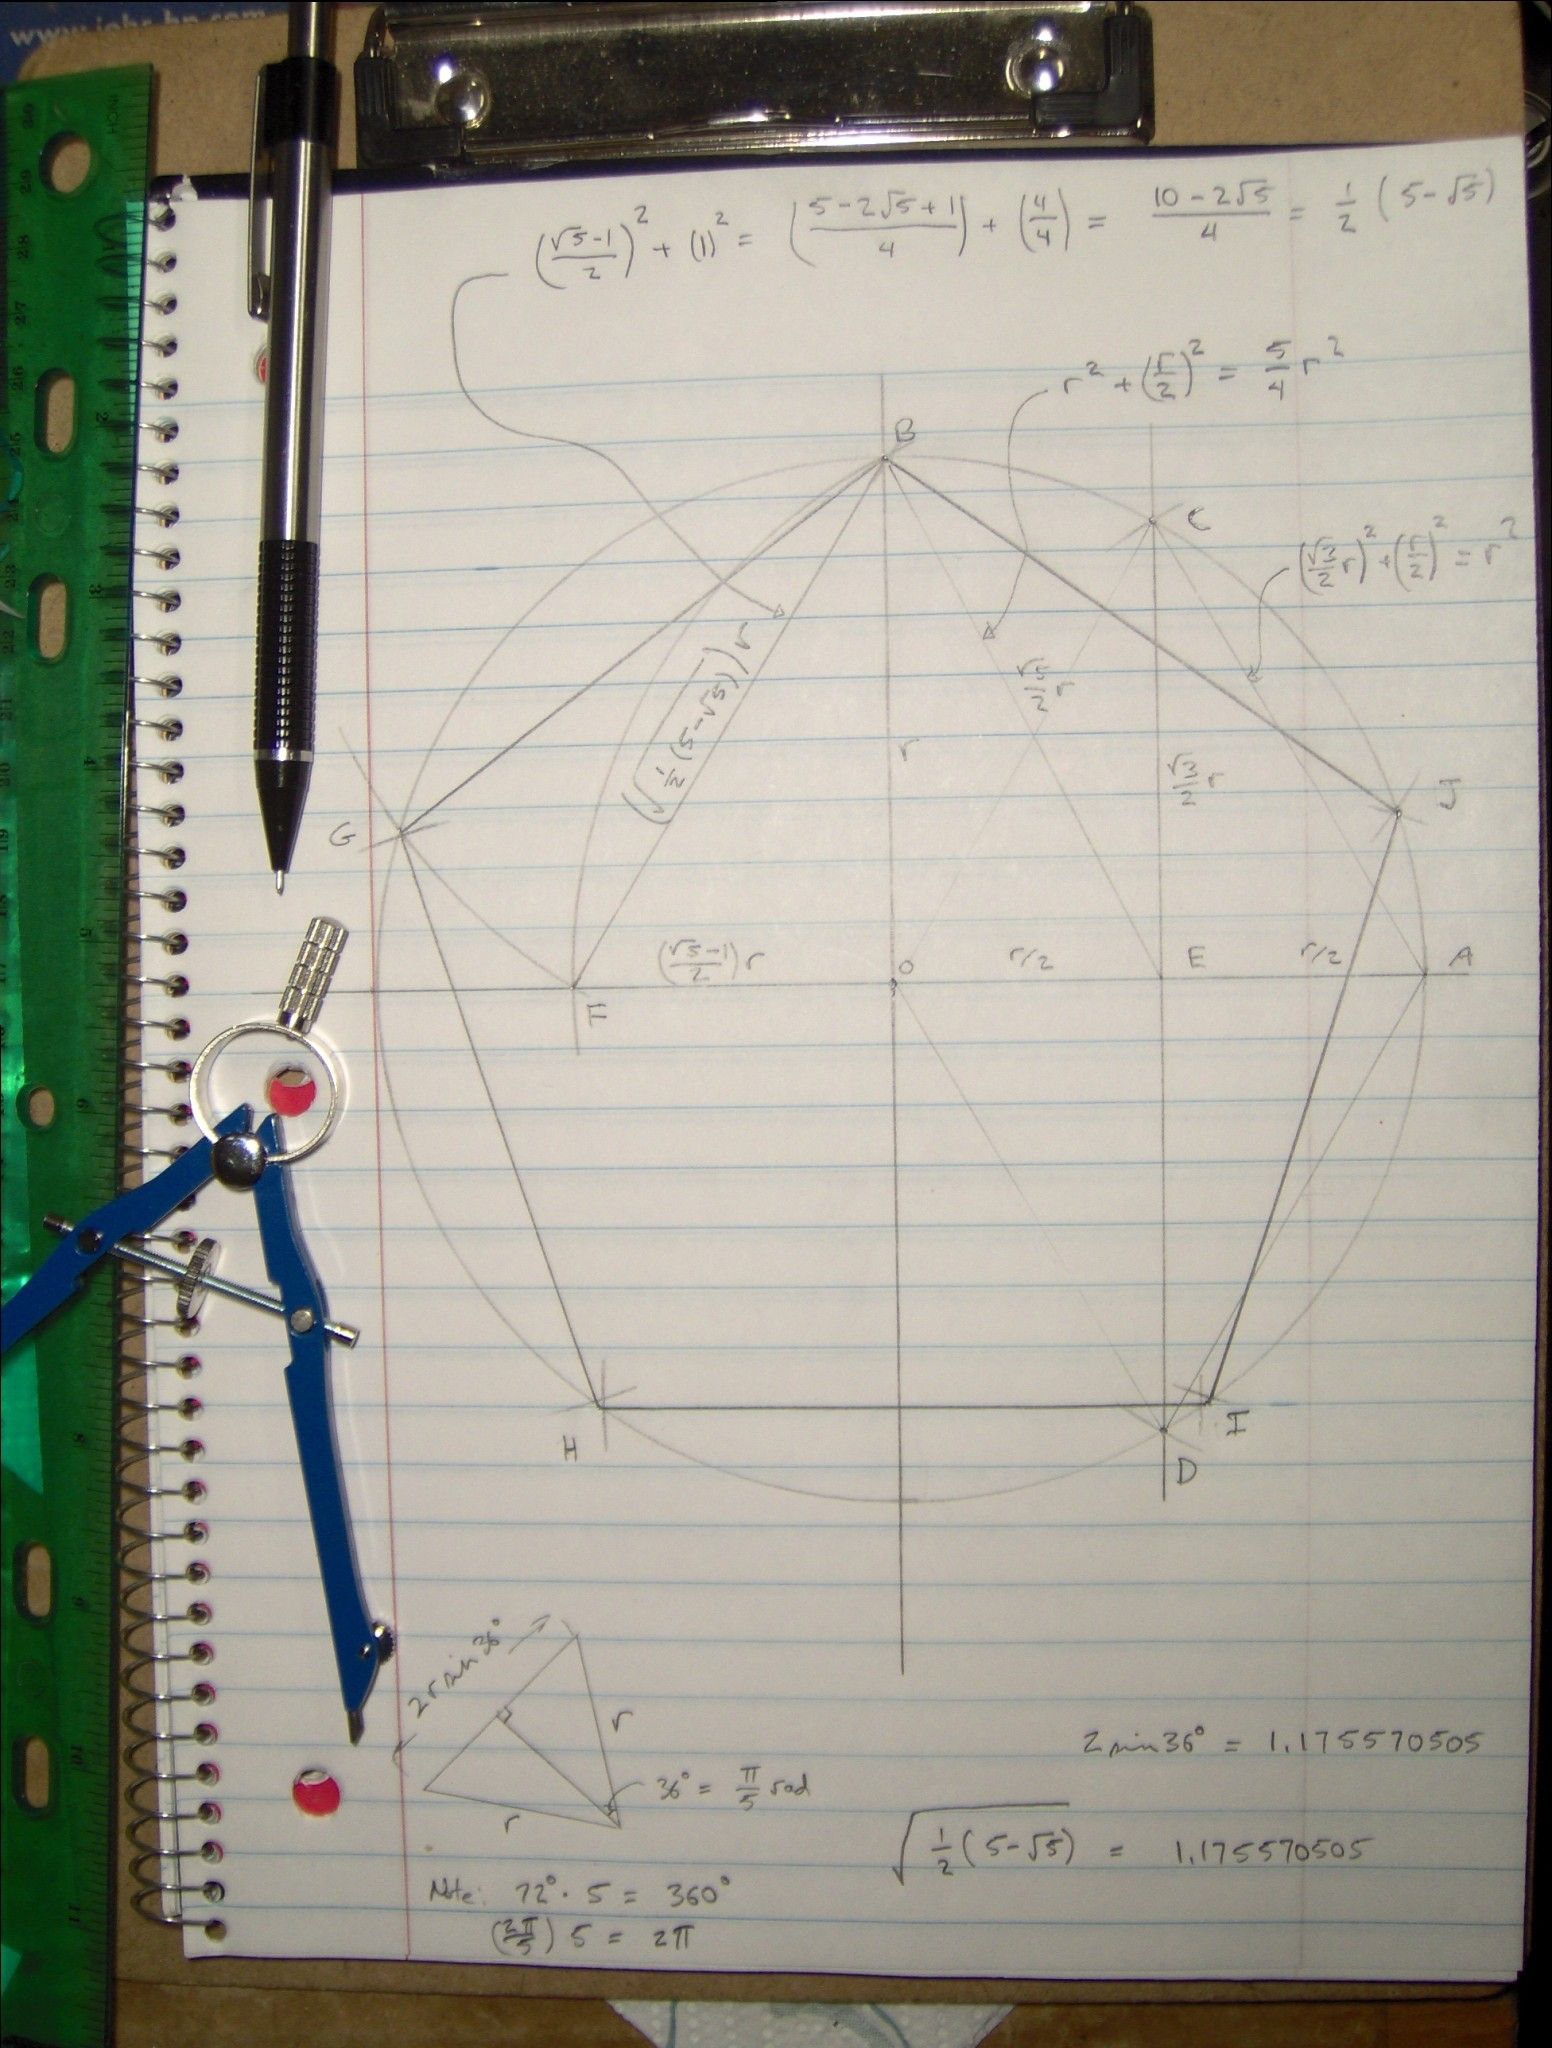 www.john-hp.com
INCH
(√5-1/2)² + (1)² = (5-2√5+1/4) + (4/4) = 10-2√5/4 = 1/2 (5-√5)
r² + (r/2)² = 5/4 r²
B
C
(√3/2 r)² + (r/2)² = r²
(√1/2(5-√5)) r
√5/2 r
r
√3/2 r
J
G
(√5-1/2) r
O
r/2
E
r/2
A
F
H
I
D
2r sin 36°
r
r
36° = π/5 rad
2 sin 36° = 1.175570505
√1/2(5-√5) = 1.175570505
Note: 72° · 5 = 360°
(2π/5) 5 = 2π